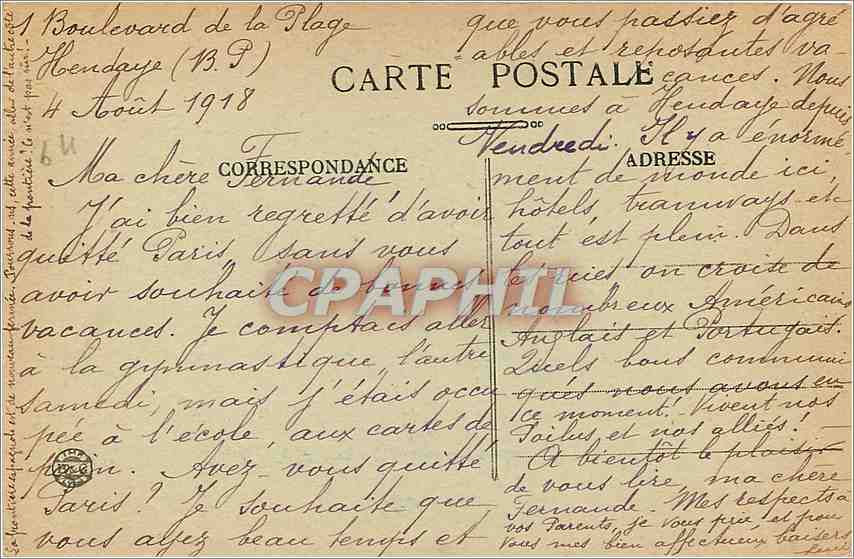 1 Boulevard de la Plage
Hendaye (B.P)
4 Août 1918
CARTE POSTALE
CORRESPONDANCE
ADRESSE
Ma chère Fernande
J'ai bien regretté d'avoir
quitté Paris, sans vous
avoir souhaité de bonnes
vacances. Je comptais aller
à la gymnastique, l'autre
samedi, mais j'étais occu
pée à l'école, aux cartes de
pain. Avez-vous quitté
Paris? Je souhaite que
vous ayez beau temps et
que vous passiez d'agré
ables et reposantes va-
cances. Nous
sommes à Hendaye depuis
Vendredi. Il y a énormé-
ment de monde ici,
hôtels, tramways etc
tout est plein. Dans
les rues on croise de
nombreux Américains
Anglais et Portugais.
Quels bons communi
qués nous avons en
ce moment! Vivent nos
Poilus et nos alliés!
A bientôt le plaisir
de vous lire, ma chère
Fernande. Mes respects à
vos Parents, je vous prie, et pour
vous mes bien affectueux baisers
La frontière espagnole est de nouveau fermée. Pourrons-nous, cette année, aller de l'autre côté
de la frontière? Ce n'est pas sûr.
CPAPHIL